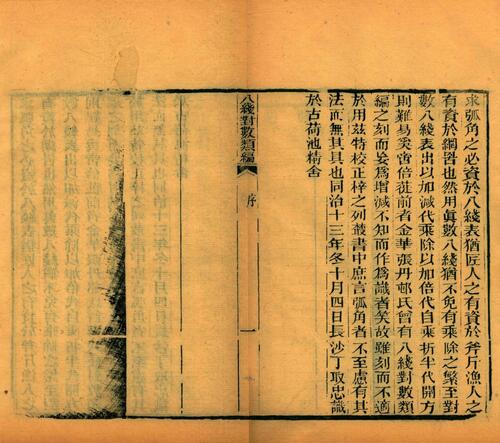 求弧角之必資於八綫表猶匠人之有資於斧斤漁人之
有資於網罟也然用眞數八綫猶不免有乘除之繁至對
數八綫表出以加減代乘除以加倍代自乘折半代開方
則難易奚啻倍蓰前者金華張丹邨氏曾有八綫對數類
編之刻而妄爲增減不知而作爲識者笑故雖刻而不適
於用茲特校正梓之列叢書中庶言弧角者不至慮有其
法而無其具也同治十三年冬十月四日長沙丁取忠識
於古荷池精舍
八綫對數類編
序
一